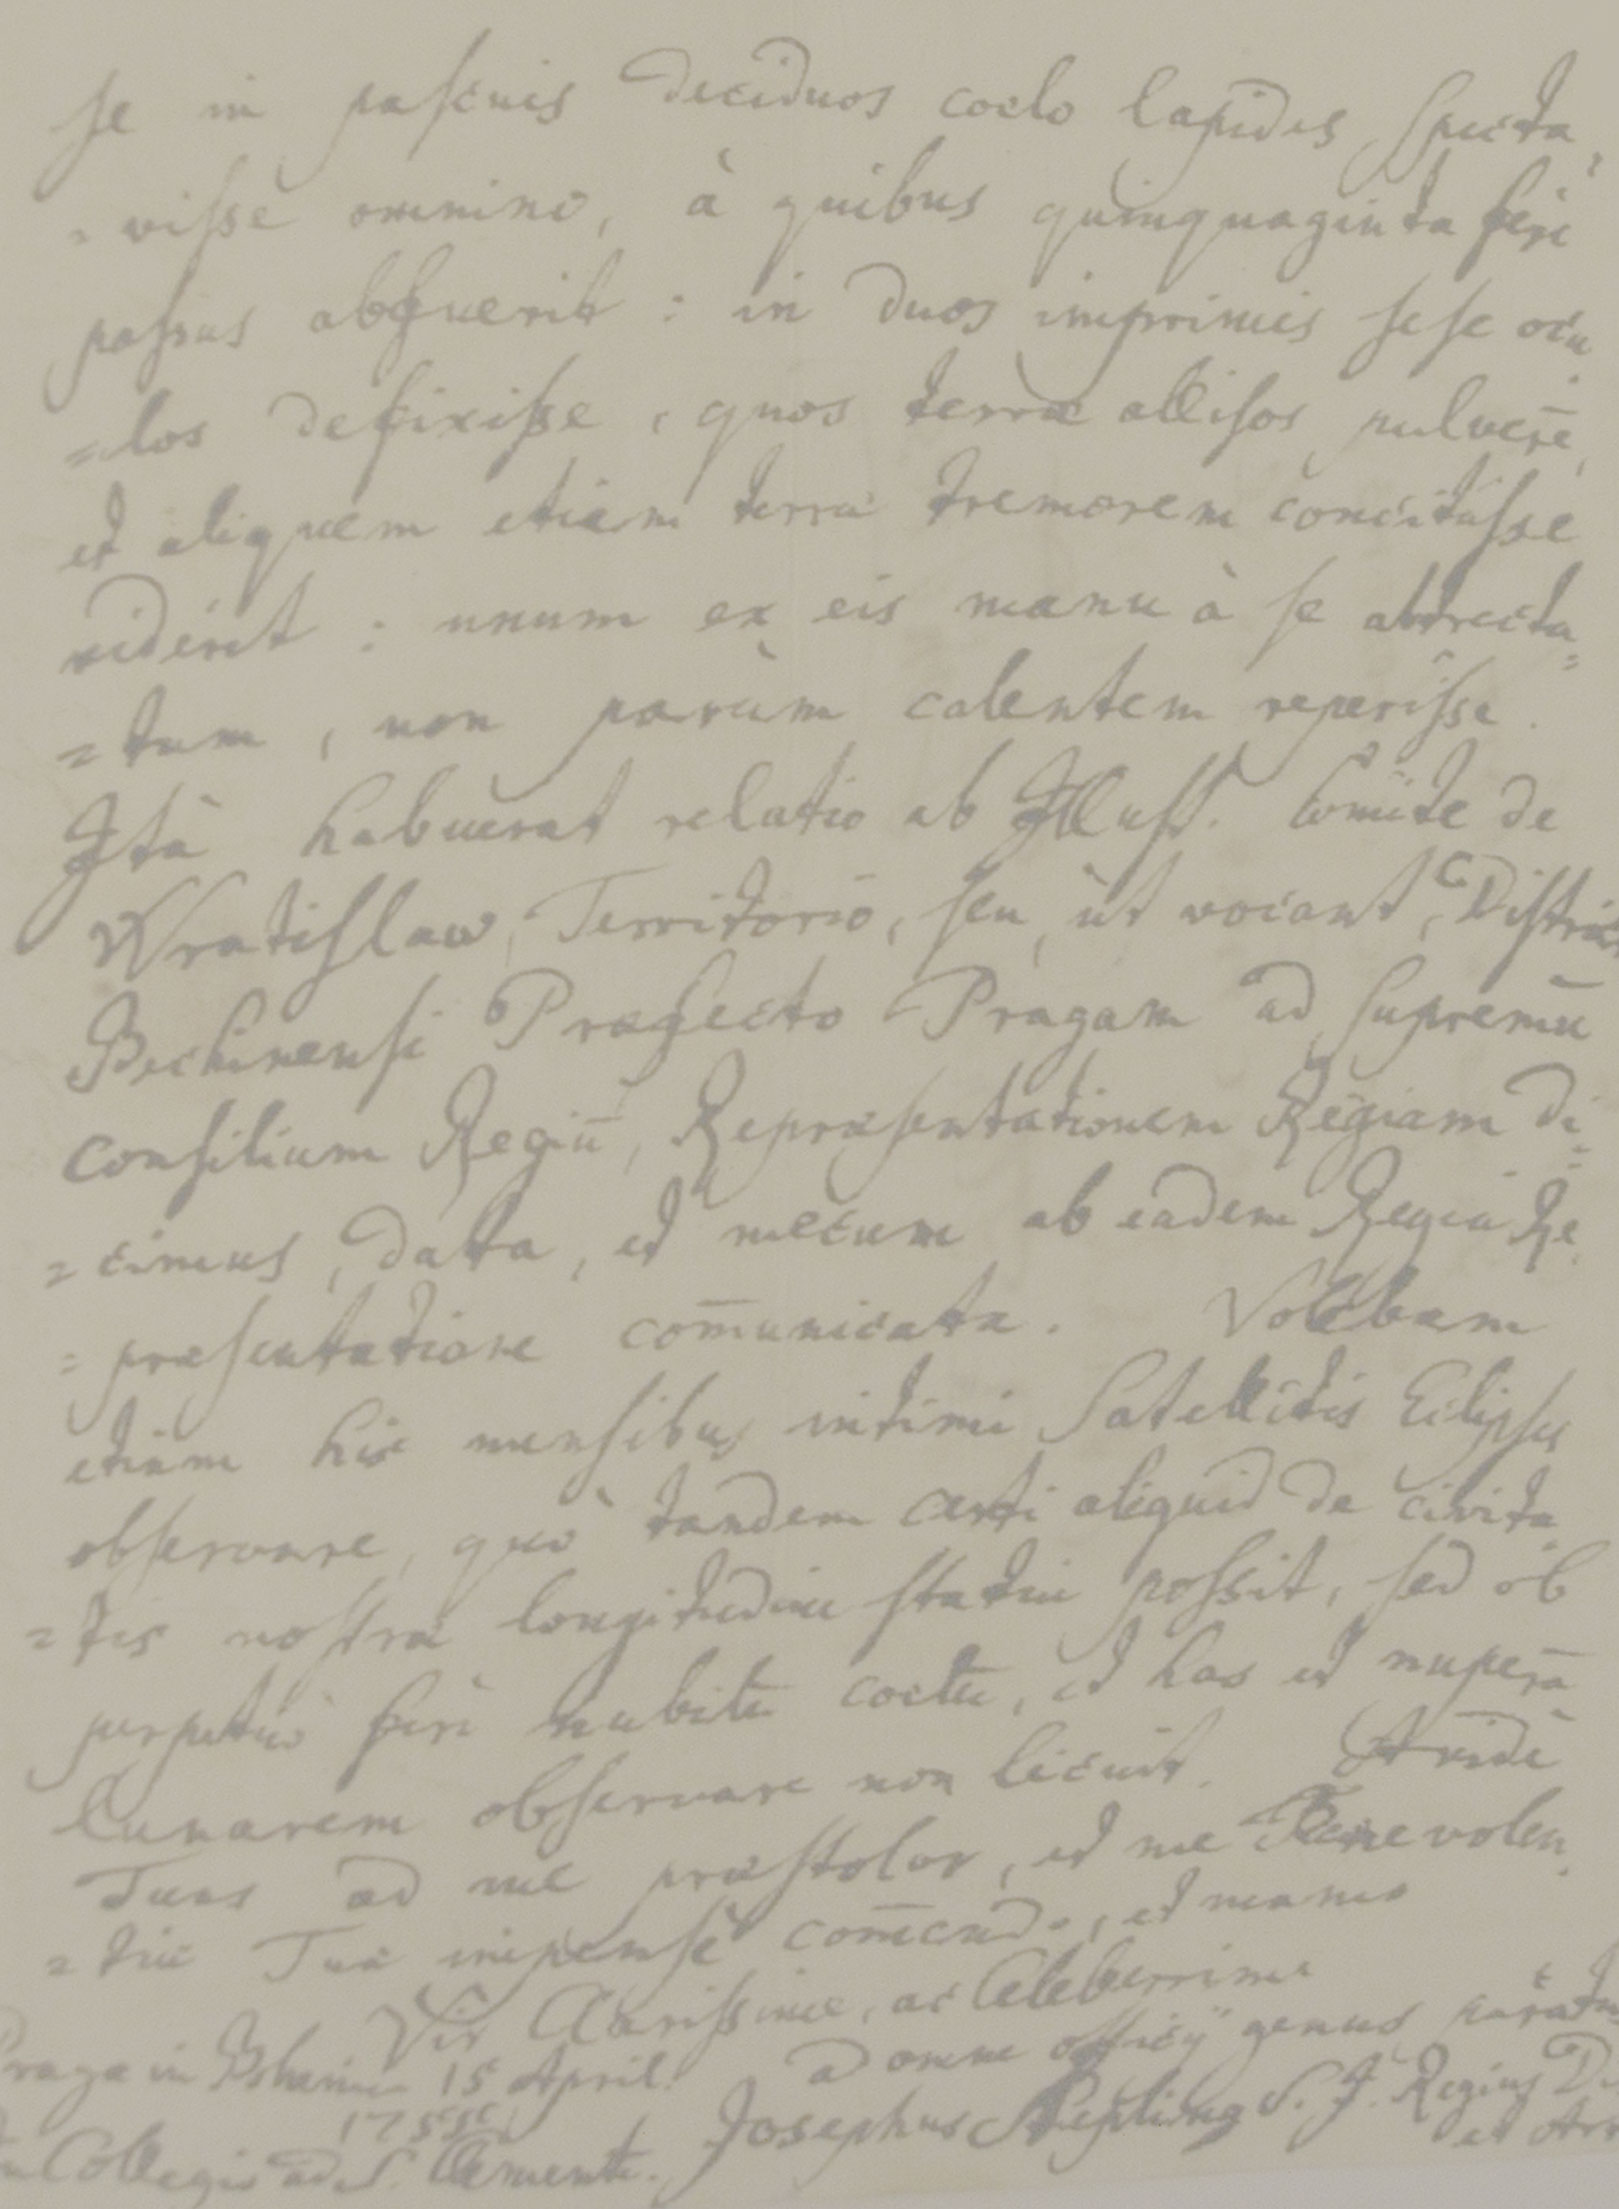 se in pascuis deciduos coelo lapides specta,
=visse omnino, à quibus quinquaginta ferè
passus abfuerit : in duos imprimis sese ocu
=los defixisse, quos terræ allisos pulverē,
et aliquem etiam terræ tremorem concitâsse
viderit : unum ex eis manu à se attrecta=
=tum, non parùm calentem reperîsse.
Ità habuerat relatio ab Illust. Comite de
Wratislaw, Territorio, seu, ùt vocant, Distric
Bechinensi Præfecto Pragam ad Supremū
Consilium Regiū, Repræsentationem Regiam di=
=cimus, data, et mecum ab eadem Regia Re
=præsentatione com̄unicata. Volebam
etiam his mensibus intimi Satellitis Eclipses
observare, quò tandem certi aliquid de civita
=tis nostræ longitudine statui possit, sed ob
perpetuò ferè nubilū coelū, et has et nuperā
Lunarem observare non licuit. Avidè
Tuas ad me præstolor, et me Benevolen
=tiæ Tuæ impensè com̄endo, et maneo
Vir Clarissime, ac Celeberrime
Praga in Bohemia 15 April. ad omne officij genus paratus
175
In Collegio ad S. Clementē. Josephus Stepling S. J. Regius Di
et Ast